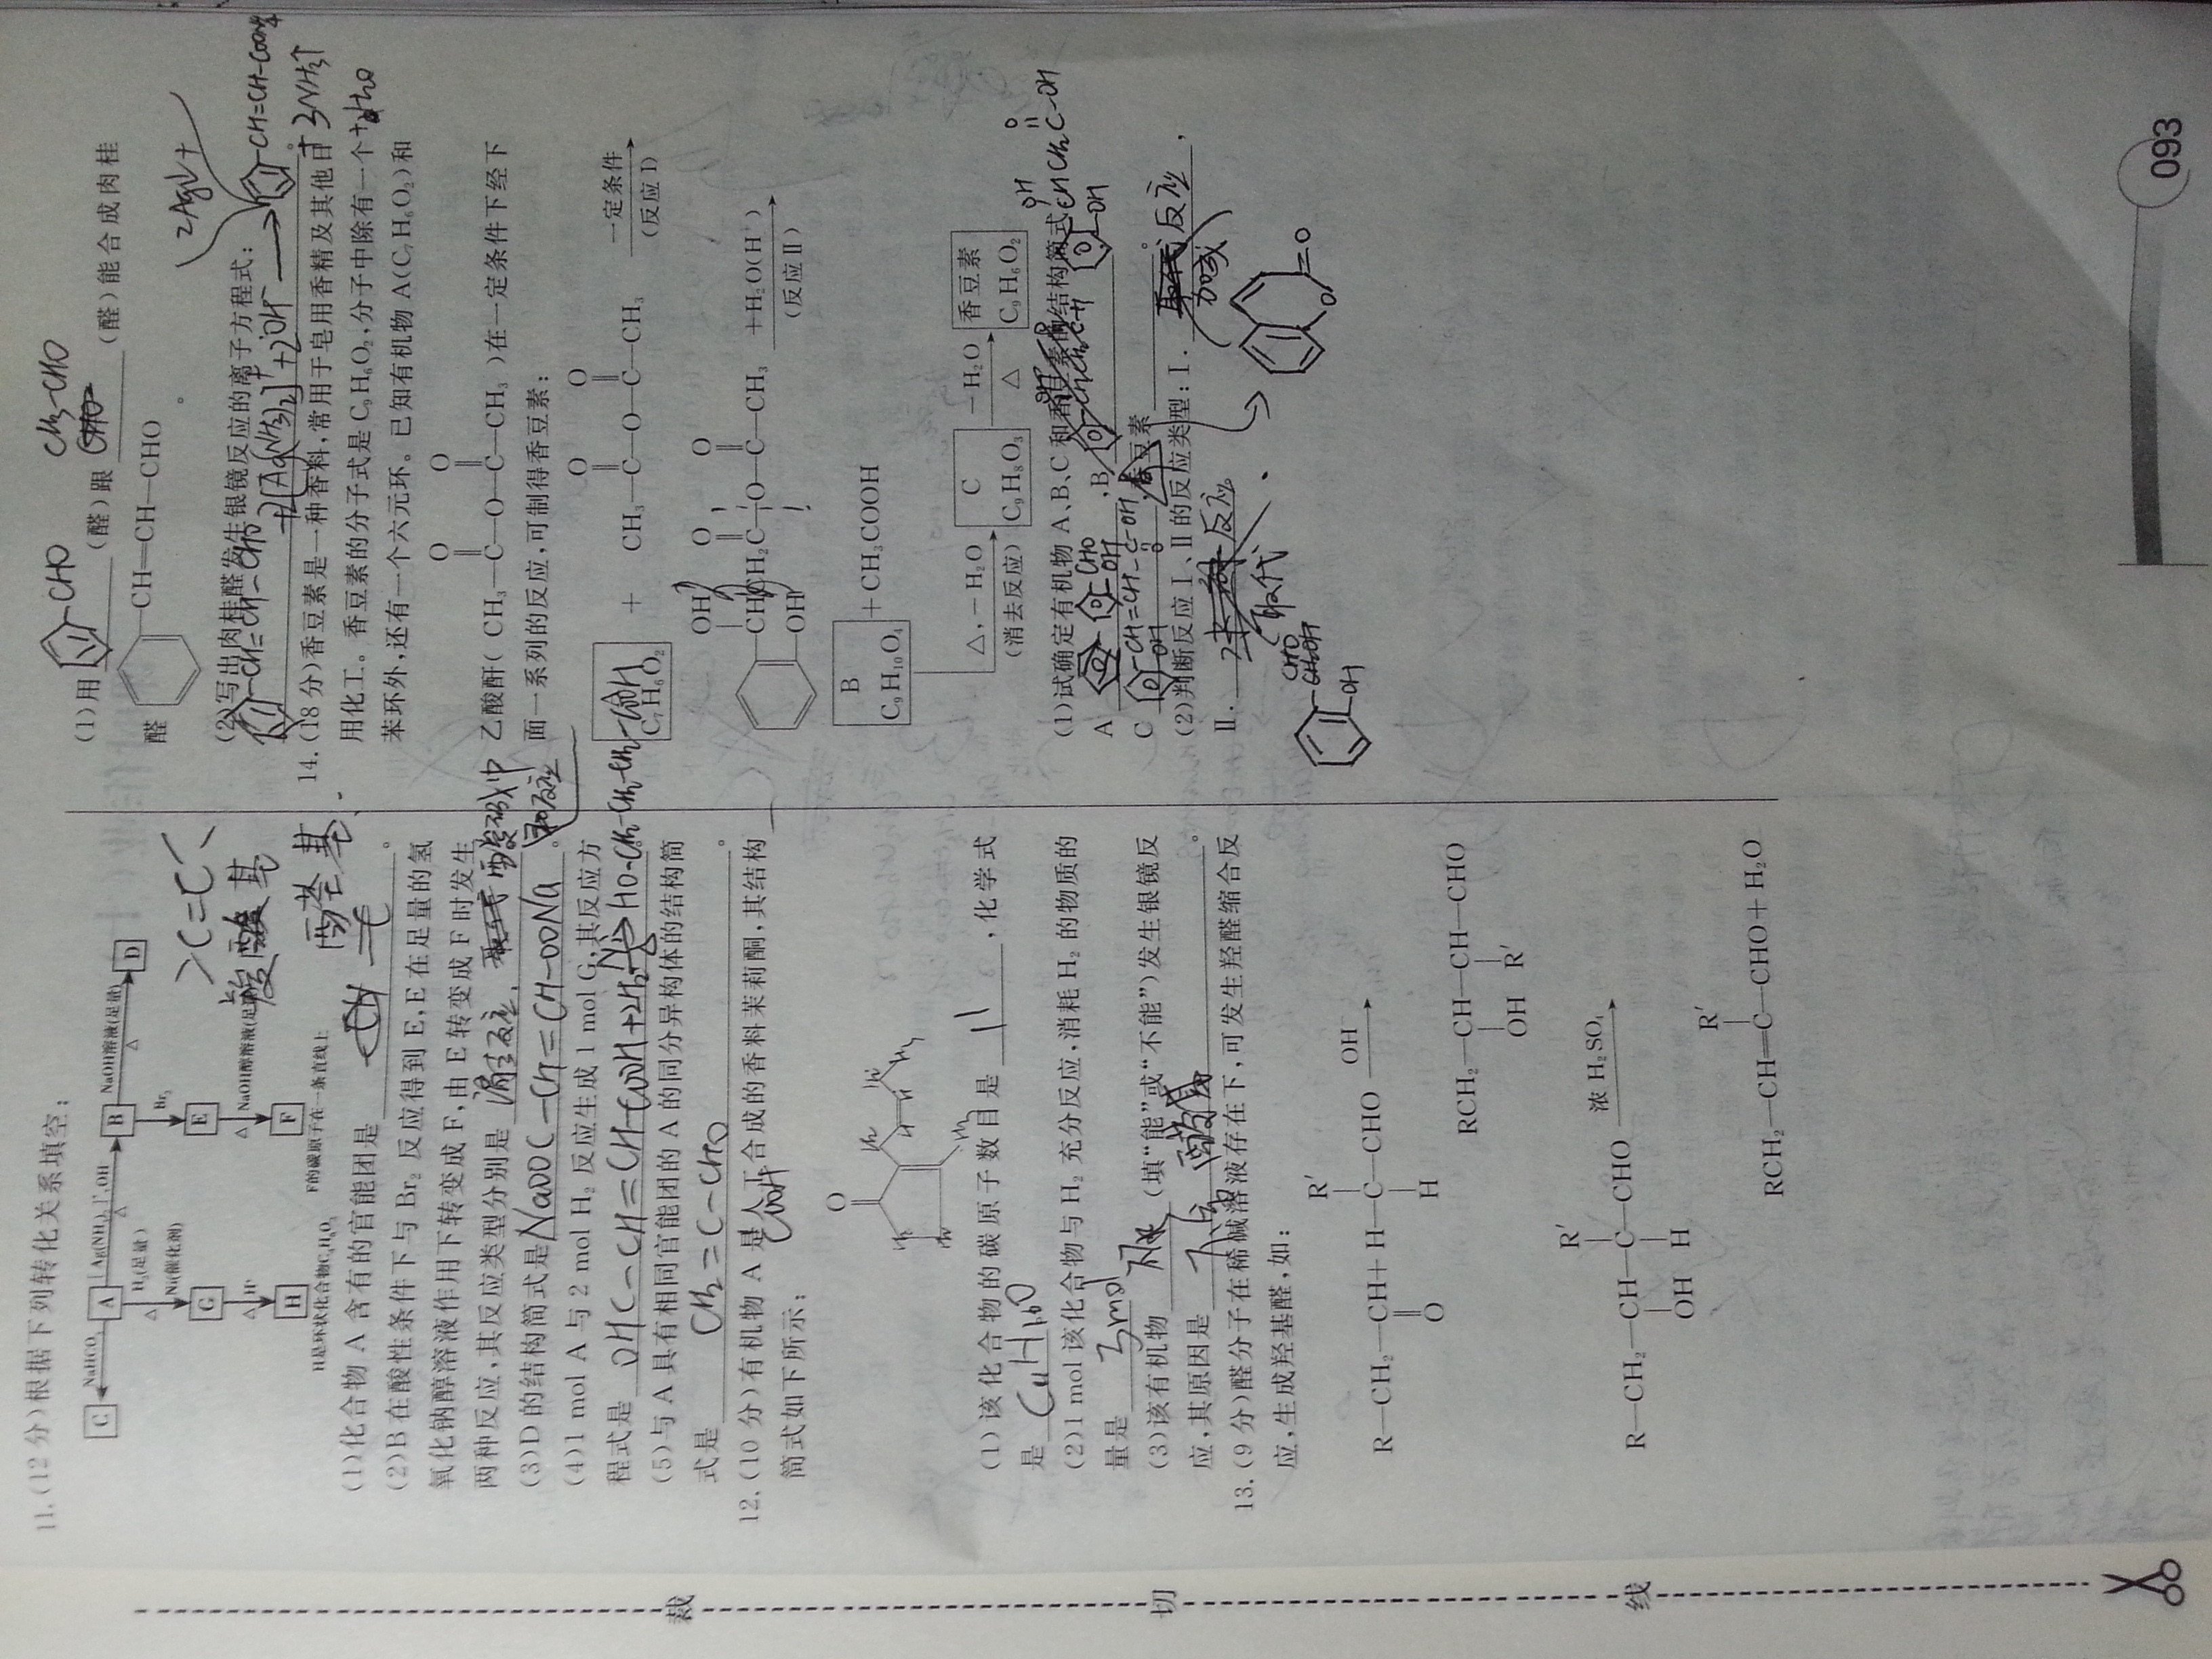 11.(12分)根据下列转化关系填空:
C NaHCO₃ A [Ag(NH₃)₂]⁺,OH⁻ △ B NaOH溶液(足量) △ D
△ H₂(足量) Ni(催化剂) Br₂
G E
△ H⁺ △ NaOH醇溶液(足量)
H F
H是环状化合物C₄H₆O₂ F的碳原子在一条直线上
>C=C<
羧基
醛基
(1)化合物 A 含有的官能团是
(2)B 在酸性条件下与 Br₂ 反应得到 E,E 在足量的氢
氧化钠醇溶液作用下转变成 F,由 E 转变成 F 时发生
两种反应,其反应类型分别是 消去反应、中和反应
(3)D 的结构简式是 NaOOC-CH=CH-OONa 。
(4)1 mol A 与 2 mol H₂ 反应生成 1 mol G,其反应方
程式是 OHC-CH=CH-COOH+2H₂ Ni △ → HO-CH₂-CH₂-CH₂-COOH
(5)与 A 具有相同官能团的 A 的同分异构体的结构简
式是 CH₂=C-CHO 。
COOH
12.(10分)有机物 A 是人工合成的香料茉莉酮,其结构
简式如下所示:
O
(1)该化合物的碳原子数目是 11 ,化学式
是 C₁₁H₁₆O
(2)1 mol 该化合物与 H₂ 充分反应,消耗 H₂ 的物质的
量是 3mol
(3)该有机物 不能 (填“能”或“不能”)发生银镜反
应,其原因是 不含醛基 。
13.(9分)醛分子在稀碱溶液存在下,可发生羟醛缩合反
应,生成羟基醛,如:
R′
R—CH₂—CH+H—C—CHO OH⁻
O H
RCH₂—CH—CH—CHO
OH R′
R′
R—CH₂—CH—C—CHO 浓 H₂SO₄
OH H
R′
RCH₂—CH=C—CHO+H₂O
(1)用 -CHO (醛)跟 CH₃-CHO (醛)能合成肉桂
醛 —CH=CH—CHO 。
(2)写出肉桂醛发生银镜反应的离子方程式:
-CH=CH-CHO +2[Ag(NH₃)₂]⁺+2OH⁻ → -CH=CH-COONH₄
2Ag↓+
+3NH₃↑
+H₂O
14.(18分)香豆素是一种香料,常用于皂用香精及其他日
用化工。香豆素的分子式是 C₉H₆O₂,分子中除有一个
苯环外,还有一个六元环。已知有机物 A(C₇H₆O₂)和
O O
乙酸酐( CH₃—C—O—C—CH₃ )在一定条件下经下
面一系列的反应,可制得香豆素:
A C₇H₆O₂ + CH₃—C—O—C—CH₃ 一定条件 (反应Ⅰ)
O O
OH O O
—CHCH₂C—O—C—CH₃ +H₂O(H⁺) (反应Ⅱ)
—OH
B C₉H₁₀O₄ +CH₃COOH
△,−H₂O (消去反应) C C₉H₈O₃ −H₂O △ 香豆素 C₉H₆O₂
(1)试确定有机物 A、B、C 和香豆素的结构简式:
A CHO OH ,B OH O CHCH₂C-OH OH
C -CH=CH-C-OH O OH ,香豆素 。
(2)判断反应Ⅰ、Ⅱ的反应类型:Ⅰ. 加成 反应 ,
Ⅱ. 取代 反应 .
CHO
OH
O =O
裁
切
线
093